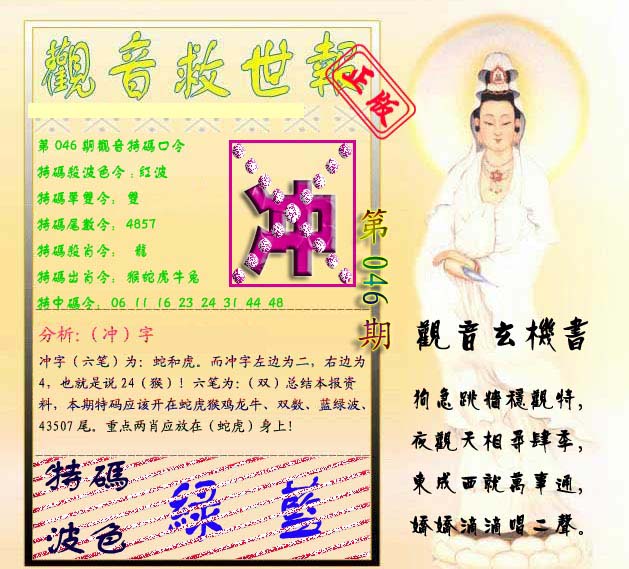 觀音救世報
正版
第 046 期觀音特碼口令
特碼殺波色令：紅波
特碼單雙令： 雙
特碼尾數令： 4857
特碼殺肖令： 龍
特碼出肖令： 猴蛇虎牛兔
特中碼令： 06 11 16 23 24 31 44 48
冲
第 046 期
分析：（冲）字
冲字（六笔）为：蛇和虎。而冲字左边为二，右边为
4，也就是说 24（猴）！六笔为：（双）总结本报资
料，本期特码应该开在蛇虎猴鸡龙牛、双数、蓝绿波、
43507 尾。重点两肖应放在（蛇虎）身上！
特碼
波色
綠 藍
觀音玄機書
狗急跳墻穩觀特，
夜觀天相尋肆季，
東成西就萬事通，
嬌嬌滴滴唱二聲。